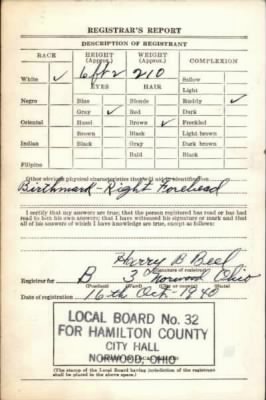 REGISTRAR'S REPORT
DESCRIPTION OF REGISTRANT
RACE HEIGHT (Approx.) WEIGHT (Approx.) COMPLEXION
White ✓ 6 ft 2 210 Sallow
EYES HAIR Light
Negro Blue Blonde Ruddy ✓
Gray ✓ Red Dark
Oriental Hazel Brown ✓ Freckled
Brown Black Light brown
Indian Black Gray Dark brown
Bald Black
Filipino
Other obvious physical characteristics that will aid in identification
Birthmark - Right Forehead
I certify that my answers are true; that the person registered has read or has had
read to him his own answers; that I have witnessed his signature or mark and that
all of his answers of which I have knowledge are true, except as follows:
Harry B Beel
(Signature of registrar)
Registrar for B 3 Norwood, Ohio
(Precinct) (Ward) (City or county) (State)
Date of registration 16th Oct-1940
LOCAL BOARD No. 32
FOR HAMILTON COUNTY
CITY HALL
NORWOOD, OHIO
(The stamp of the Local Board having jurisdiction of the registrant
shall be placed in the above space.)